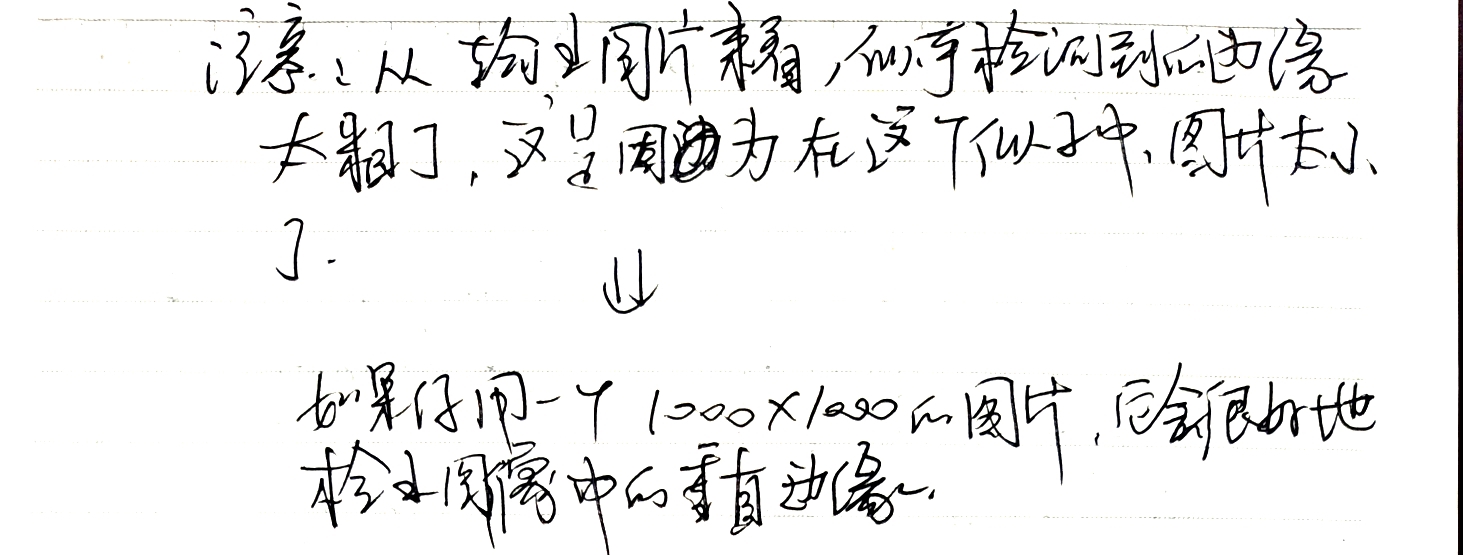 注意：从输出图片来看，似乎检测到的边缘
太粗了，这是因为在这个例子中，图片太小
了.
⇓
如果仔用一个1000×1000的图片，它会很好地
检出图像中的垂直边缘.